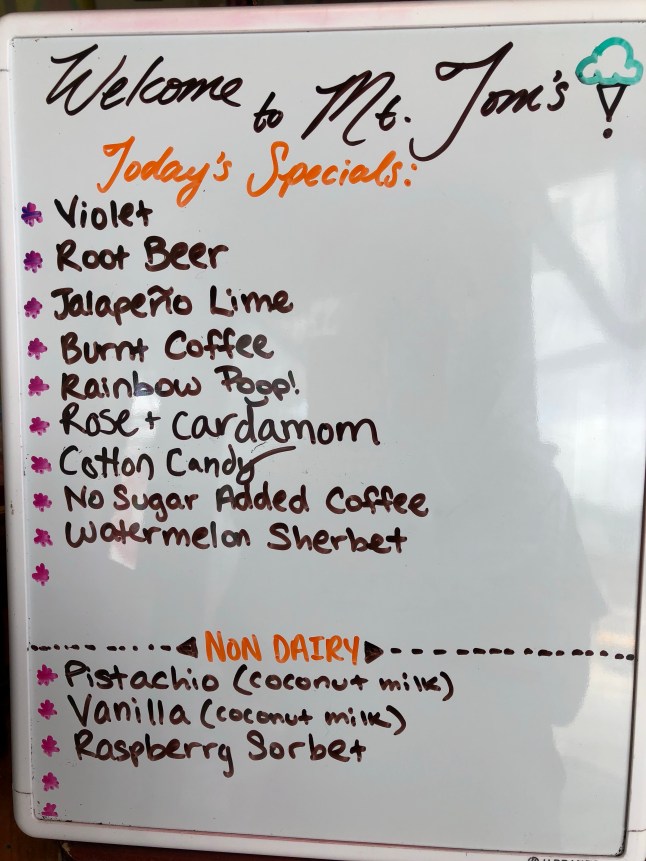 Welcome to Mt. Tom's
Today's Specials:
Violet
Root Beer
Jalapeño Lime
Burnt Coffee
Rainbow Poop!
Rose + Cardamom
Cotton Candy
No Sugar Added Coffee
Watermelon Sherbet
NON DAIRY
Pistachio (coconut milk)
Vanilla (coconut milk)
Raspberry Sorbet